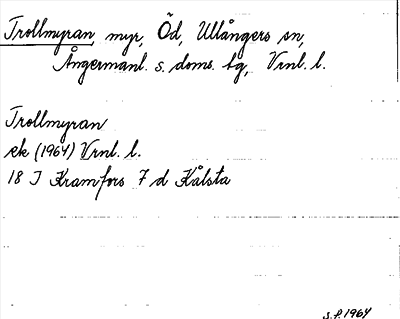 Trollmyran myr, Öd, Ullångers sn,
Ångermanl. s. doms. tg, Vrnl. l.
Trollmyran
ek (1964) Vrnl. l.
18 J Kramfors 7 d Kålsta
S.P. 1964